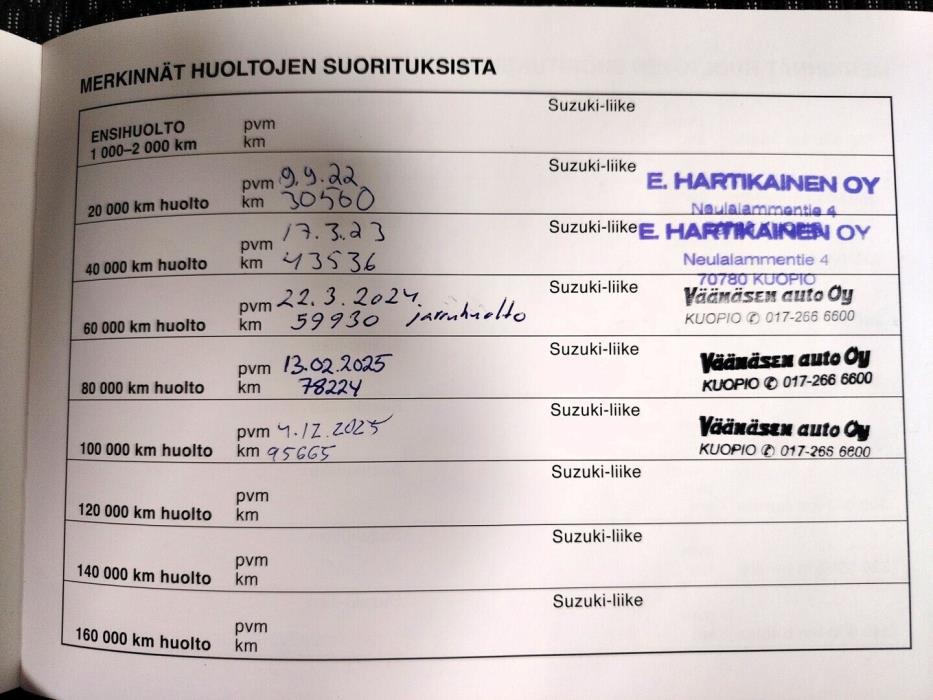 MERKINNÄT HUOLTOJEN SUORITUKSISTA
ENSIHUOLTO
1 000–2 000 km
pvm
km
Suzuki-liike
20 000 km huolto
pvm 9.9.22
km 30560
Suzuki-liike
E. HARTIKAINEN OY
Neulalammentie 4
40 000 km huolto
pvm 17.3.23
km 43536
Suzuki-liike
E. HARTIKAINEN OY
Neulalammentie 4
70780 KUOPIO
60 000 km huolto
pvm 22.3.2024
km 59930 jarruhuolto
Suzuki-liike
Väänäsen auto Oy
KUOPIO ✆ 017-266 6600
80 000 km huolto
pvm 13.02.2025
km 78224
Suzuki-liike
Väänäsen auto Oy
KUOPIO ✆ 017-266 6600
100 000 km huolto
pvm 4.12.2025
km 95665
Suzuki-liike
Väänäsen auto Oy
KUOPIO ✆ 017-266 6600
120 000 km huolto
pvm
km
Suzuki-liike
140 000 km huolto
pvm
km
Suzuki-liike
160 000 km huolto
pvm
km
Suzuki-liike